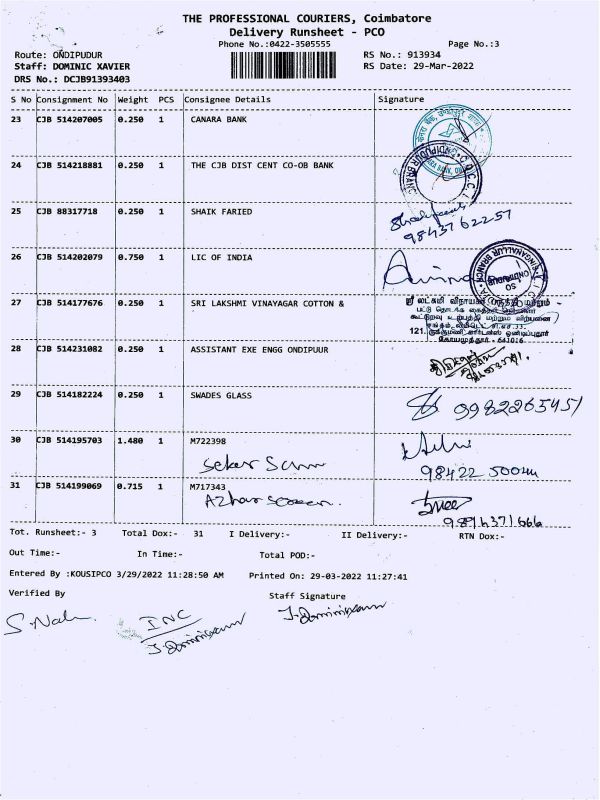 THE PROFESSIONAL COURIERS, Coimbatore
Delivery Runsheet - PCO
Phone No.:0422-3505555
Page No.:3
Route: ONDIPUDUR
RS No.: 913934
Staff: DOMINIC XAVIER
RS Date: 29-Mar-2022
DRS No.: DCJB91393403
S No Consignment No Weight PCS Consignee Details Signature
23 CJB 514207005 0.250 1 CANARA BANK
24 CJB 514218881 0.250 1 THE CJB DIST CENT CO-OB BANK
25 CJB 88317718 0.250 1 SHAIK FARIED
9843762257
26 CJB 514202079 0.750 1 LIC OF INDIA
27 CJB 514177676 0.250 1 SRI LAKSHMI VINAYAGAR COTTON &
ஸ்ரீ லட்சுமி விநாயகர் பருத்தி மற்றும்
28 CJB 514231082 0.250 1 ASSISTANT EXE ENGG ONDIPUUR
29 CJB 514182224 0.250 1 SWADES GLASS
9982265451
30 CJB 514195703 1.480 1 M722398
31 CJB 514199069 0.715 1 M717343
Tot. Runsheet:- 3 Total Dox:- 31 I Delivery:- II Delivery:- RTN Dox:-
Out Time:- In Time:- Total POD:-
Entered By :KOUSIPCO 3/29/2022 11:28:50 AM Printed On: 29-03-2022 11:27:41
Verified By Staff Signature
INC